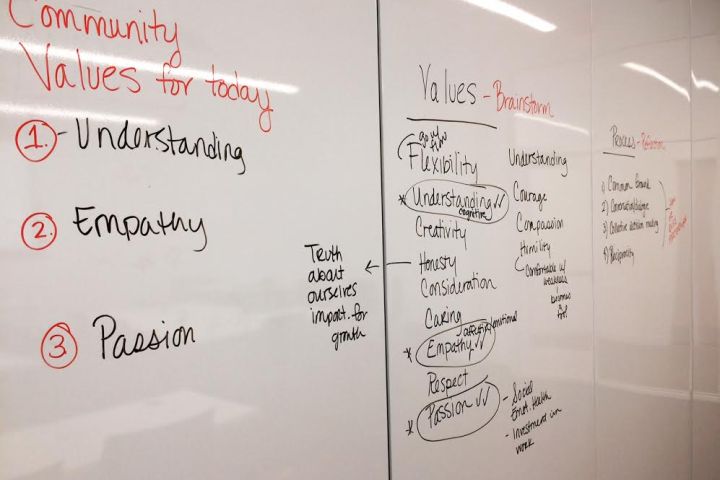 Community
Values for today
1. - Understanding
2. Empathy
3 Passion
Values - Brainstorm
go w/
Flexibility
* Understanding ✓✓
cognitive
Creativity
Honesty
Truth
about
ourselves
impact. for
growth
Consideration
Caring
affective/emotional
* Empathy ✓✓
Respect
* Passion ✓✓
- Social
Emot. Health
- Investment in
work
Understanding
Courage
Compassion
Humility
Comfortable w/
weakness
becomes
Process - Reflection
1) Common Ground
2) Conversation/dialogue
3) Collective decision making
4) Reciprocity